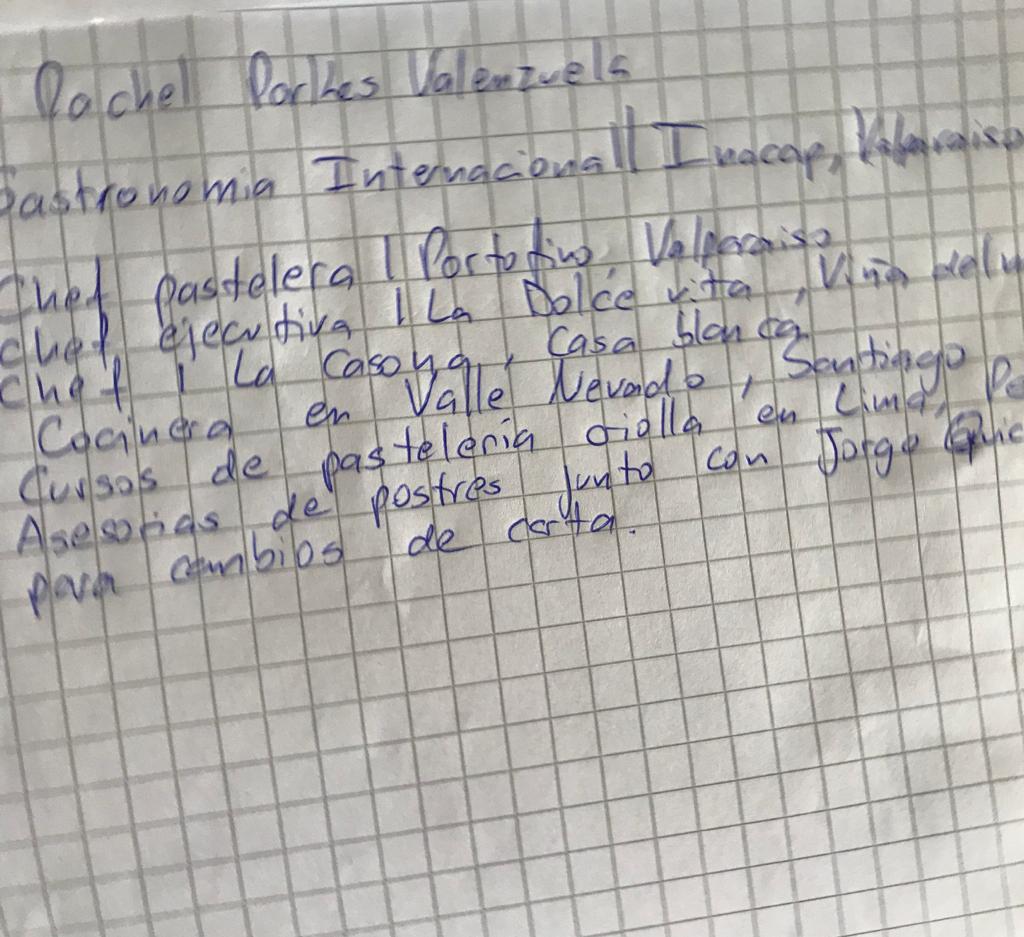 Rachel Valenzuela
Gastronomia Internacional | Inacap, Valparaiso
Chef pastelera | Portofino, Valparaiso
Chef ejecutiva | La Dolce vita, Viña del
Chef | La Casona, Casa blanca
Cocinera en Valle Nevado, Santiago
Cursos de pasteleria criolla en Lima, Pe
Asesorias de postres junto con Jorge
para cambios de carta.